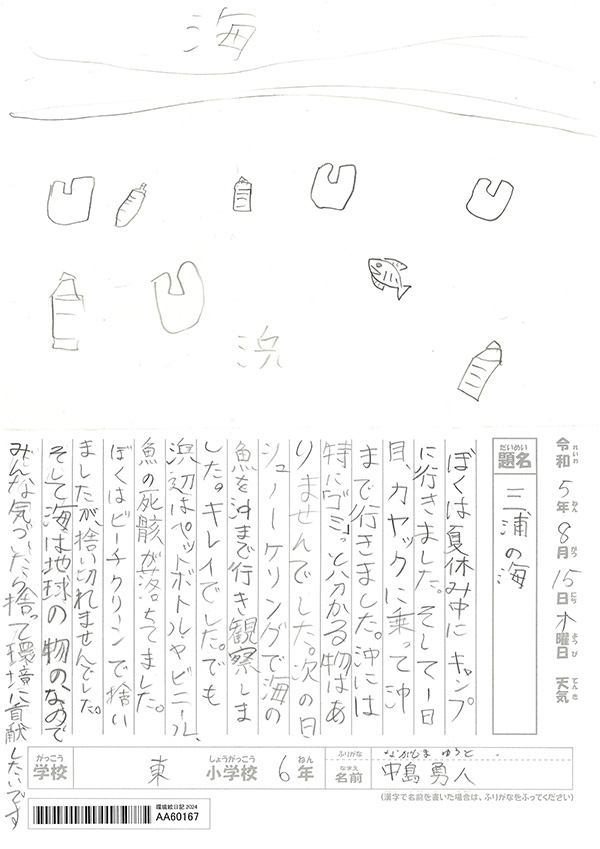 海
浜
令和5年8月15日木曜日 天気
題名 三浦の海
ぼくは夏休み中にキャンプ
に行きました。そして一日
目、カヤックに乗って沖
まで行きました。沖には
特にゴミっと分かる物はあ
りませんでした。次の日
シューノーケリングで海の
魚を沖まで行き観察しま
した。キレイでした。でも
浜辺はペットボトルやビニール、
魚の死骸が落ちてました。
ぼくはビーチクリーンで捨い
ましたが、捨い切れませんでした。
そして海は地球の物のなので
みんな気づいたら捨って環境に貢献したいです
学校 東小学校 6年
ふりがな なかじま ゆうと
名前 中島 勇人
(漢字で名前を書いた場合は、ふりがなをふってください)
環境絵日記 2024
AA60167